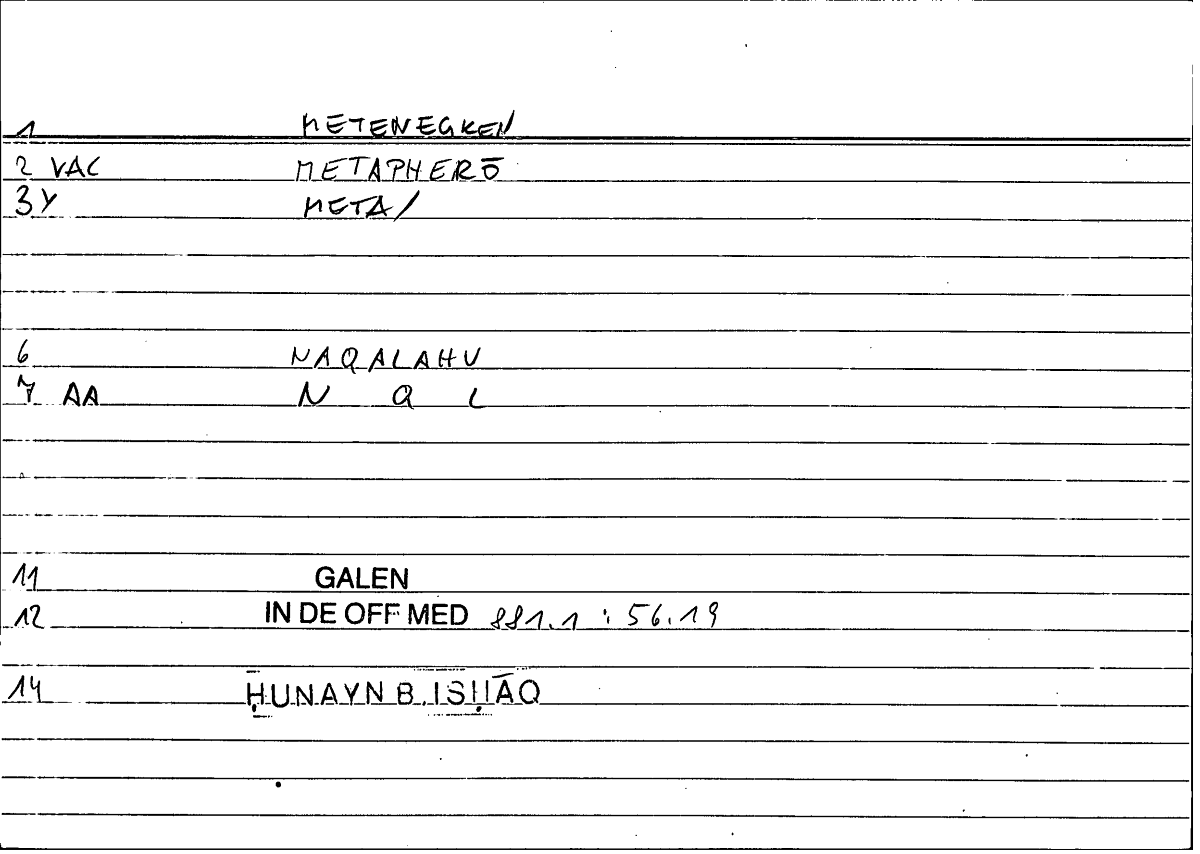 1 METENEGKEN
2 VAC METAPHERŌ
3Y META/
6 NAQALAHU
7 AA N Q L
11 GALEN
12 IN DE OFF MED 881.1 : 56.19
14 ḤUNAYN B. ISḤĀQ